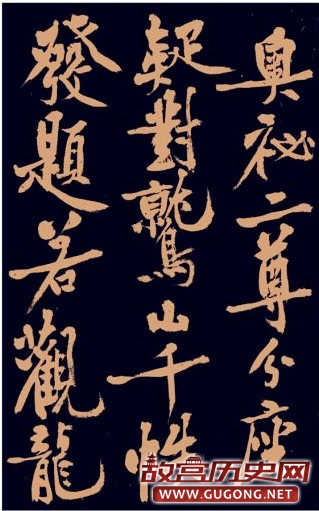 奧祕二尊分座
疑對鷲山千帙
發題若觀龍
故宫历史网
WWW.GUGONG.NET